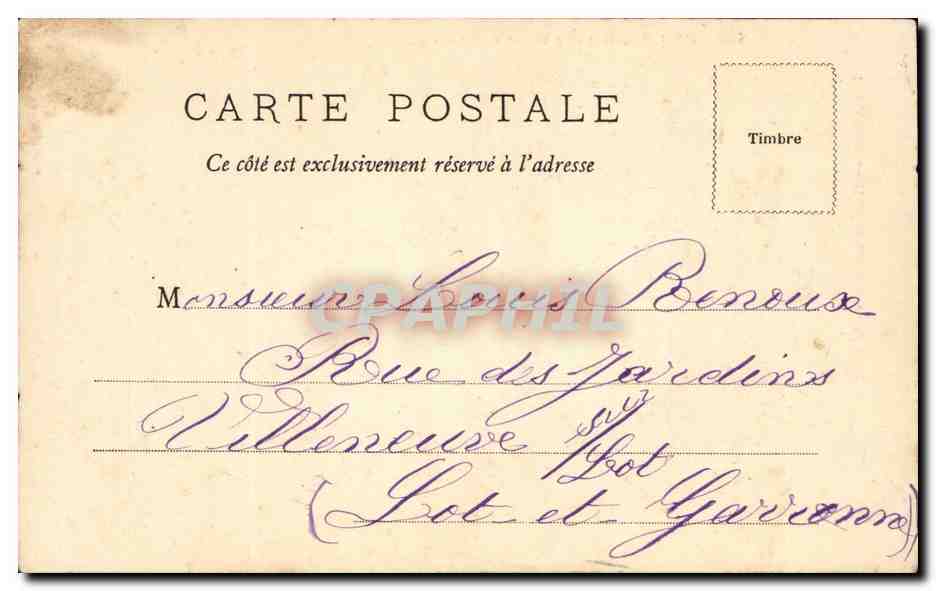 CARTE POSTALE
Ce côté est exclusivement réservé à l'adresse
Timbre
Monsieur Louis Renoux
CPAPHIL
Rue des Jardins
Villeneuve sur/Lot
(Lot et Garronne)